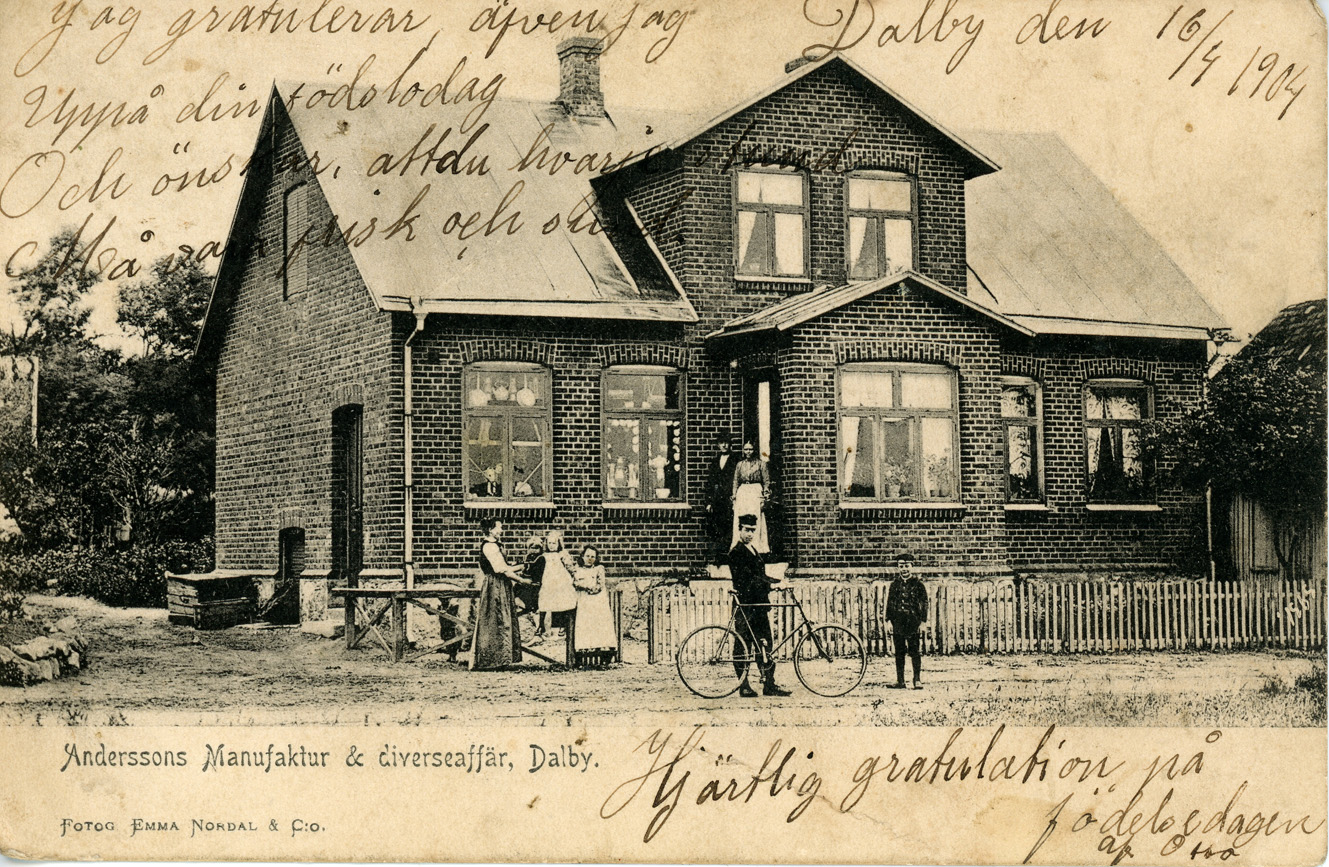 Jag gratulerar, äfven jag
Dalby den 16/4 1904
Uppå din födslodag
Och önskar, attdu hvarje stund
Må vara frisk och
Anderssons Manufaktur & diverseaffär, Dalby.
Hjärtlig gratulation på
födelsedagen
af Otto
Fotog Emma Nordal & C:o.